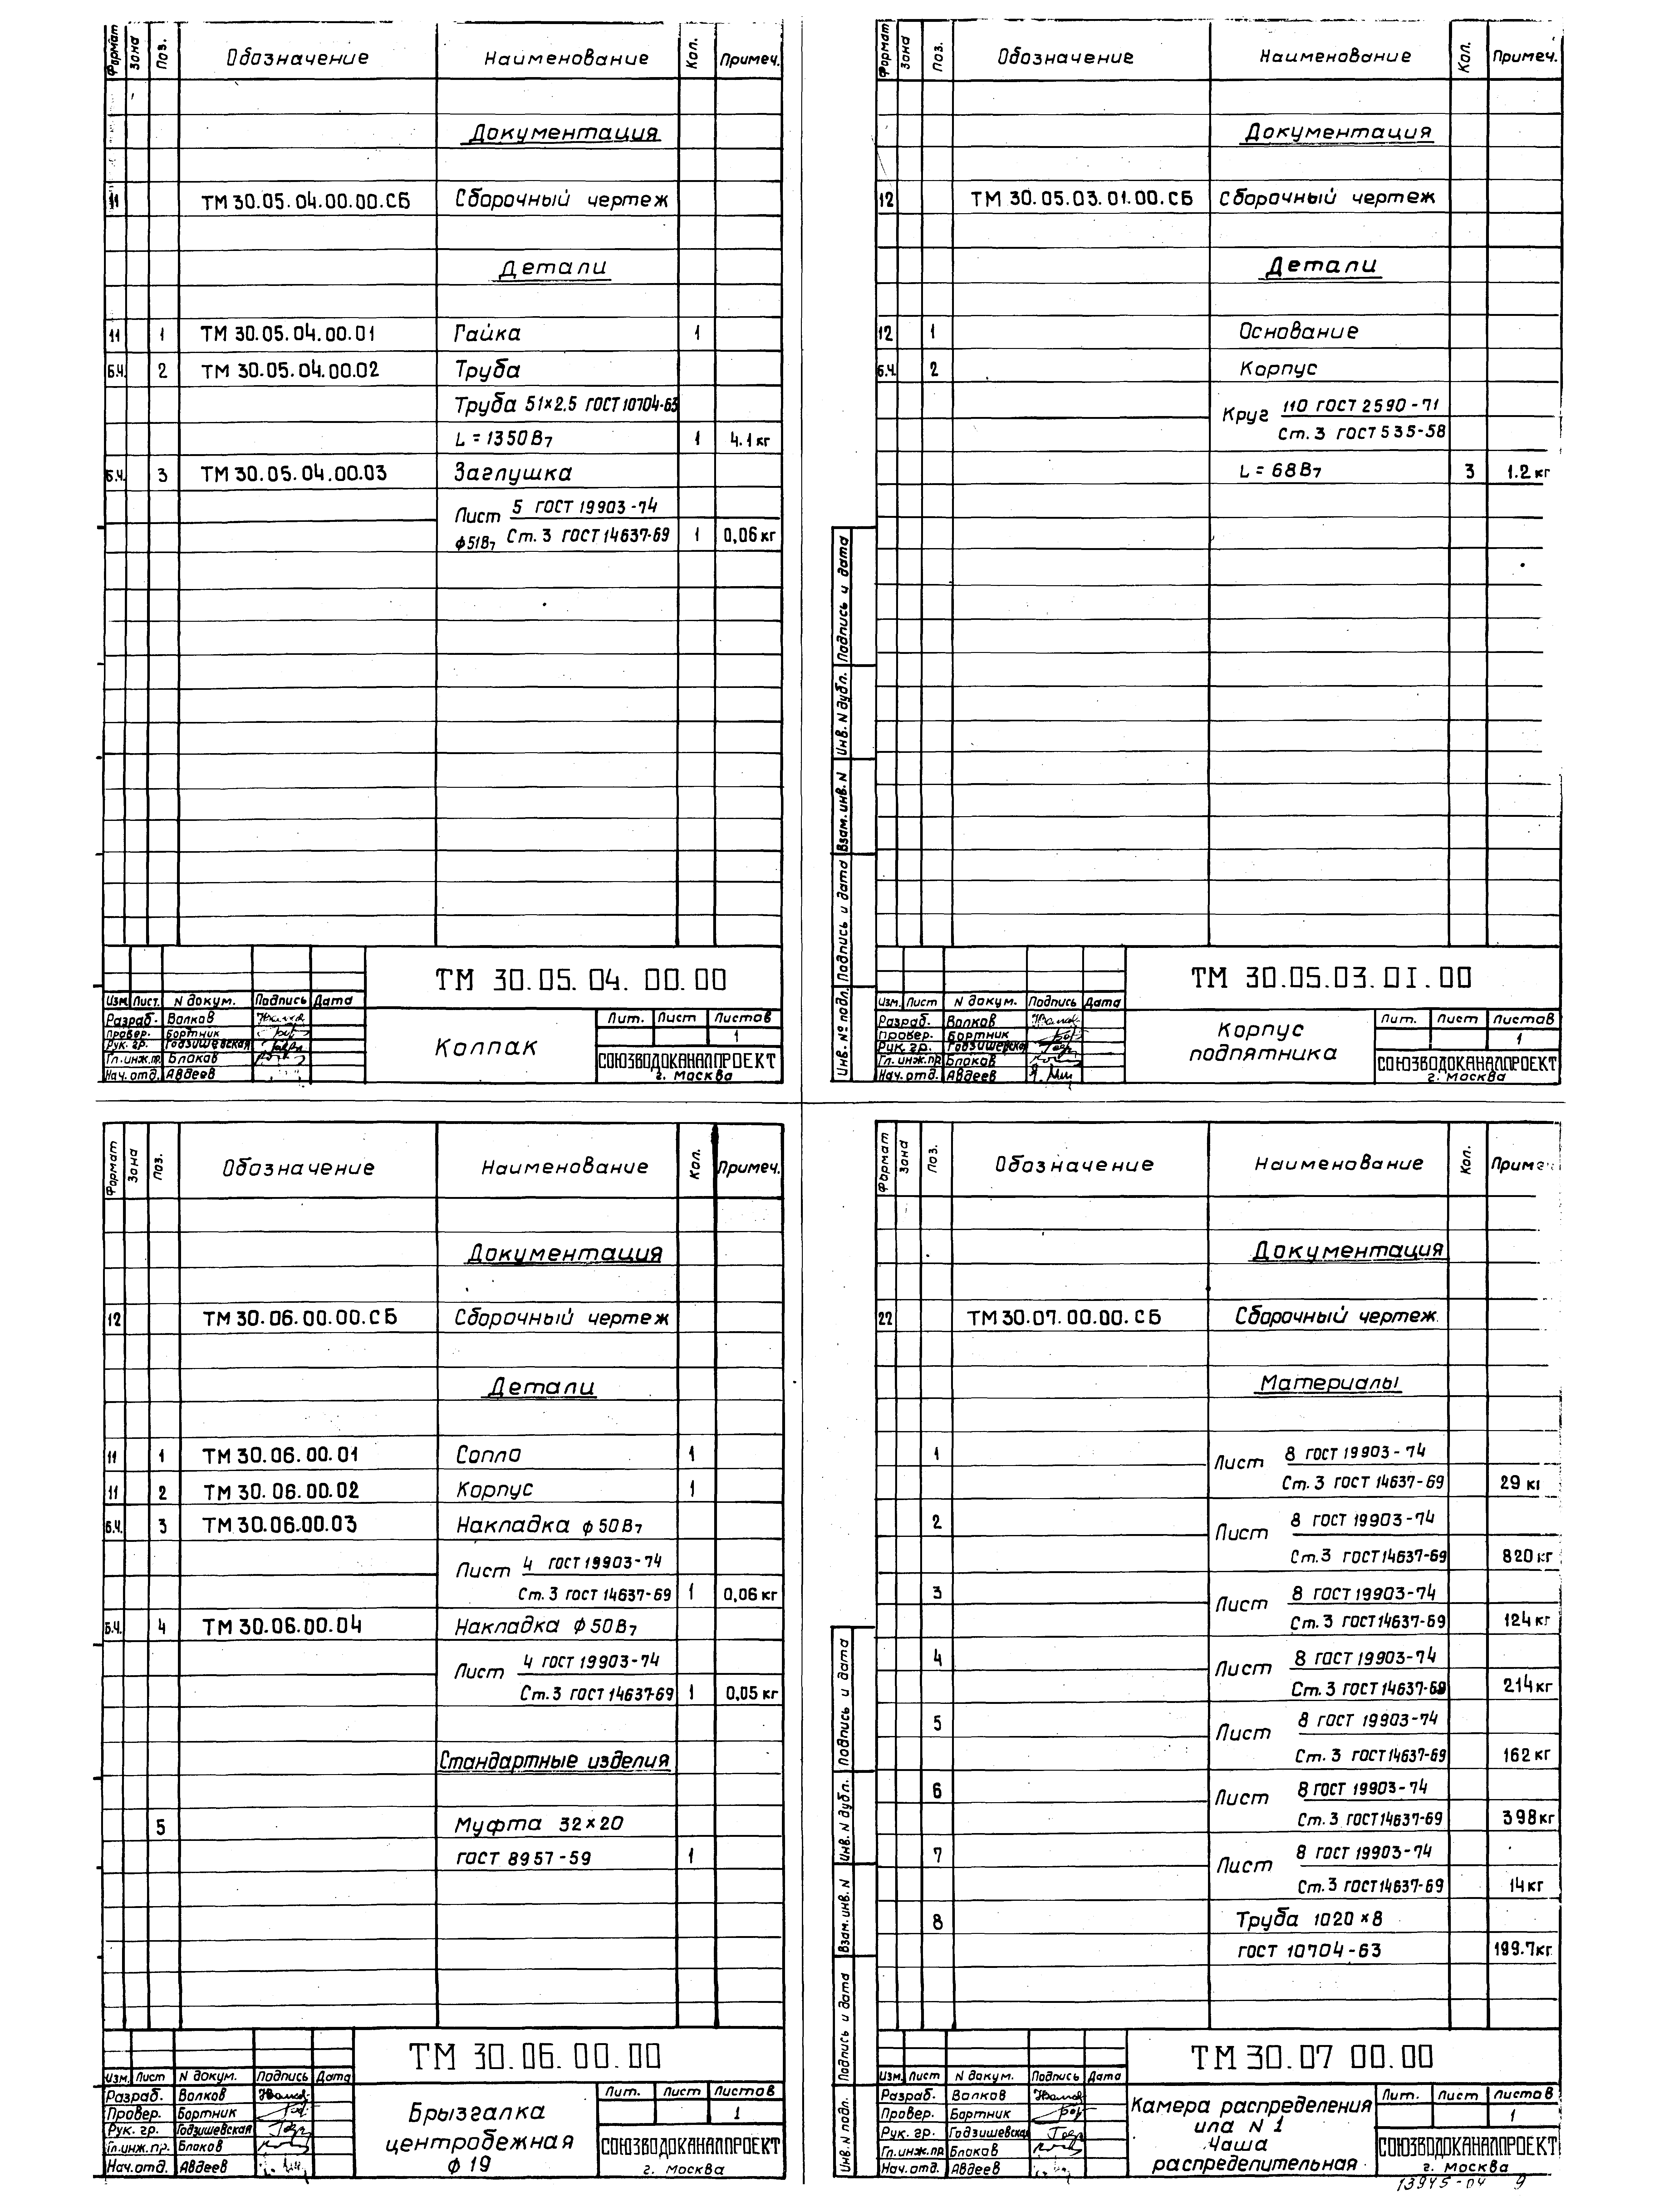 Формат Зона Поз. Обозначение Наименование Кол. Примеч.
Документация
11 ТМ 30.05.04.00.00.СБ Сборочный чертеж
Детали
11 1 ТМ 30.05.04.00.01 Гайка 1
Б.Ч. 2 ТМ 30.05.04.00.02 Труба
Труба 51×2.5 ГОСТ 10704-63
L = 1350В7 1 4.1 кг
Б.Ч. 3 ТМ 30.05.04.00.03 Заглушка
Лист 5 ГОСТ 19903-74
ф51В7 Ст. 3 ГОСТ 14637-69 1 0,06 кг
ТМ 30.05.04.00.00
Изм. Лист. N докум. Подпись Дата
Разраб. Волков
Провер. Бортник
Рук. гр. Годзишевская
Гл.инж.пр. Блоков
Нач.отд. Авдеев
Колпак
Лит. Лист Листов
1
СОЮЗВОДОКАНАЛПРОЕКТ
г. Москва
Формат Зона Поз. Обозначение Наименование Кол. Примеч.
Документация
12 ТМ 30.05.03.01.00.СБ Сборочный чертеж
Детали
12 1 Основание
Б.Ч. 2 Корпус
Круг 110 ГОСТ 2590-71
Ст. 3 ГОСТ 535-58
L = 68В7 3 1.2 кг
Инв. № подл. Подпись и дата Взам. инв. N Инв. N дубл. Подпись и дата
ТМ 30.05.03.01.00
Изм. Лист N докум. Подпись Дата
Разраб. Волков
Провер. Бортник
Рук. гр. Годзишевская
Гл. инж.пр. Блоков
Нач.отд. Авдеев
Корпус
подпятника
Лит. Лист Листов
1
СОЮЗВОДОКАНАЛПРОЕКТ
г. Москва
Формат Зона Поз. Обозначение Наименование Кол. Примеч.
Документация
12 ТМ 30.06.00.00.СБ Сборочный чертеж
Детали
11 1 ТМ 30.06.00.01 Сопло 1
11 2 ТМ 30.06.00.02 Корпус 1
Б.Ч. 3 ТМ 30.06.00.03 Накладка ф 50В7
Лист 4 ГОСТ 19903-74
Ст. 3 ГОСТ 14637-69 1 0,06 кг
Б.Ч. 4 ТМ 30.06.00.04 Накладка ф 50В7
Лист 4 ГОСТ 19903-74
Ст. 3 ГОСТ 14637-69 1 0,05 кг
Стандартные изделия
5 Муфта 32×20
ГОСТ 8957-59 1
ТМ 30.06.00.00
Изм. Лист N докум. Подпись Дата
Разраб. Волков
Провер. Бортник
Рук. гр. Годзишевская
Гл.инж.пр. Блоков
Нач.отд. Авдеев
Брызгалка
центробежная
ф 19
Лит. Лист Листов
1
СОЮЗВОДОКАНАЛПРОЕКТ
г. Москва
Формат Зона Поз. Обозначение Наименование Кол. Примеч.
Документация
22 ТМ 30.07.00.00.СБ Сборочный чертеж
Материалы
1 Лист 8 ГОСТ 19903-74
Ст. 3 ГОСТ 14637-69 29 кг
2 Лист 8 ГОСТ 19903-74
Ст. 3 ГОСТ 14637-69 820 кг
3 Лист 8 ГОСТ 19903-74
Ст. 3 ГОСТ 14637-69 124 кг
4 Лист 8 ГОСТ 19903-74
Ст. 3 ГОСТ 14637-69 214 кг
5 Лист 8 ГОСТ 19903-74
Ст. 3 ГОСТ 14637-69 162 кг
6 Лист 8 ГОСТ 19903-74
Ст. 3 ГОСТ 14637-69 398 кг
7 Лист 8 ГОСТ 19903-74
Ст. 3 ГОСТ 14637-69 14 кг
8 Труба 1020×8
ГОСТ 10704-63 199.7 кг
Инв. N подл. Подпись и дата Взам. инв. N Инв. N дубл. Подпись и дата
ТМ 30.07 00.00
Изм. Лист N докум. Подпись Дата
Разраб. Волков
Провер. Бортник
Рук. гр. Годзишевская
Гл. инж.пр Блоков
Нач. отд. Авдеев
Камера распределения
ила N 1
Чаша
распределительная
Лит. Лист Листов
1
СОЮЗВОДОКАНАЛПРОЕКТ
г. Москва
13945-04 9